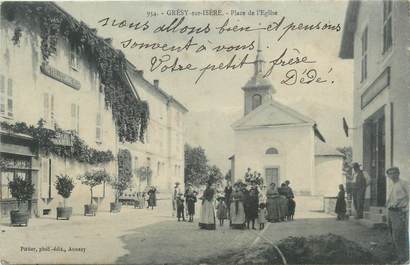 954. - GRÉSY-sur-ISÈRE. - Place de l'Eglise
nous allons bien et pensons
souvent a vous.
Votre petit frère
Dédé!
Pittier, phot.-édit., Annecy